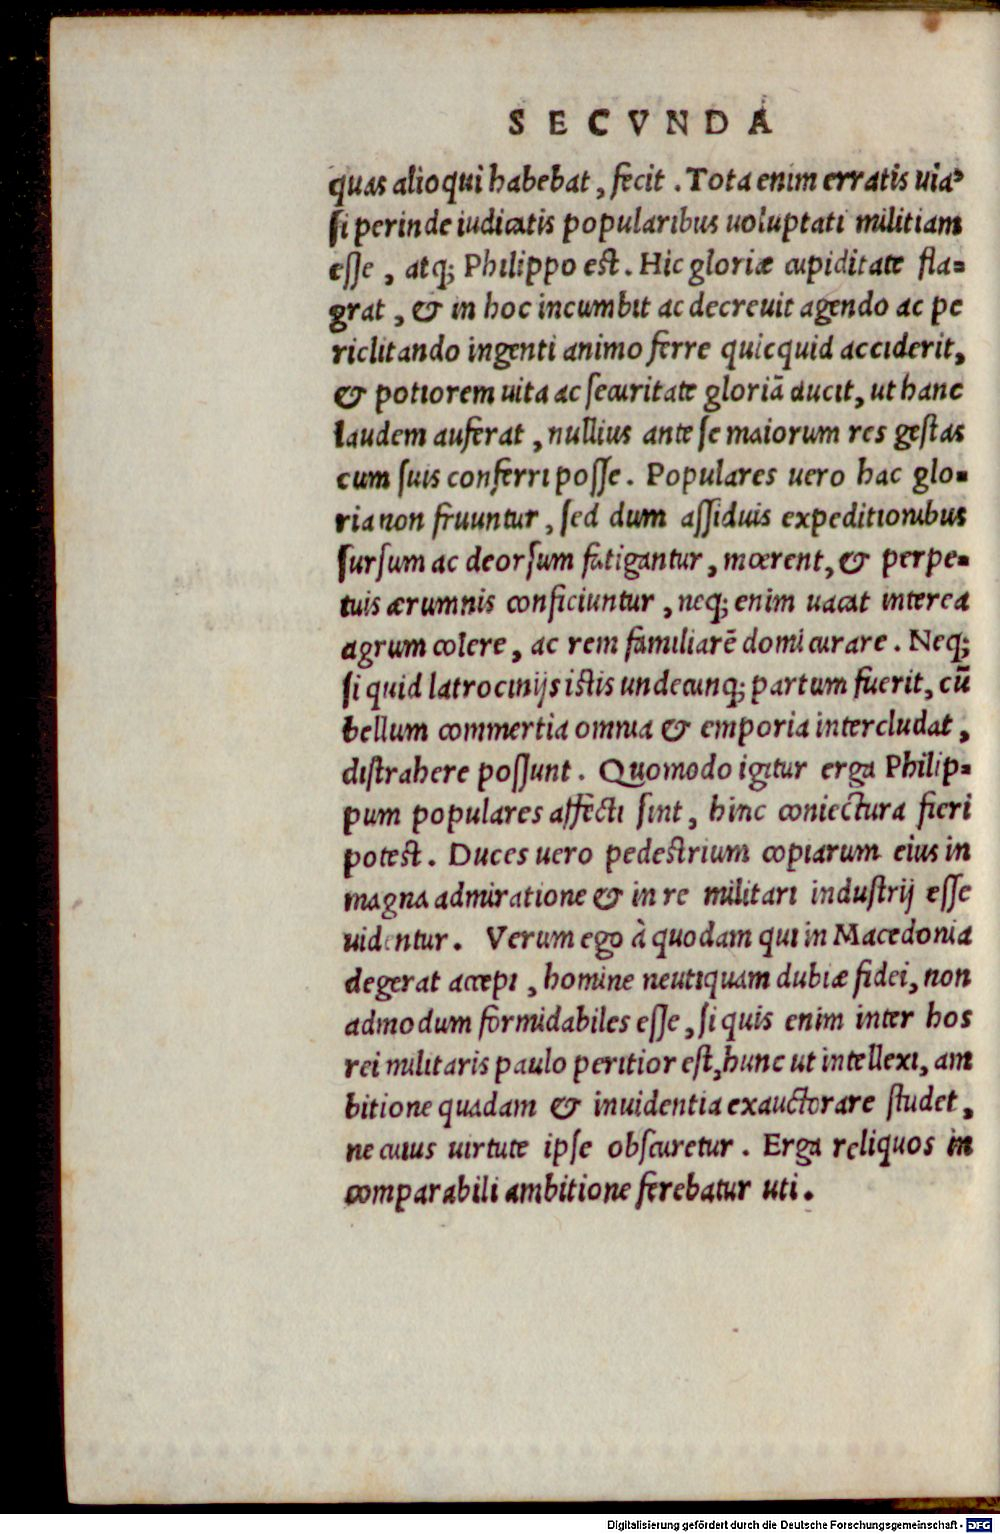 SECVNDA
quas alioqui habebat, fecit. Tota enim erratis uia,
si perinde iudicatis popularibus uoluptati militiam
esse, atq; Philippo est. Hic gloriæ cupiditate fla-
grat, & in hoc incumbit ac decreuit agendo ac pe
riclitando ingenti animo ferre quicquid acciderit,
& potiorem uita ac securitate gloriā ducit, ut hanc
laudem auferat, nullius ante se maiorum res gestas
cum suis conferri posse. Populares uero hac glo-
ria non fruuntur, sed dum assiduis expeditionibus
sursum ac deorsum fatigantur, mœrent, & perpe-
tuis ærumnis conficiuntur, neq; enim uacat interea
agrum colere, ac rem familiarē domi curare. Neq;
si quid latrocinijs istis undecunq; partum fuerit, cū
bellum commertia omnia & emporia intercludat,
distrahere possunt. Quomodo igitur erga Philip-
pum populares affecti sint, hinc coniectura fieri
potest. Duces uero pedestrium copiarum eius in
magna admiratione & in re militari industrij esse
uidentur. Verum ego à quodam qui in Macedonia
degerat accepi, homine neutiquam dubiæ fidei, non
admodum formidabiles esse, si quis enim inter hos
rei militaris paulo peritior est, hunc ut intellexi, am
bitione quadam & inuidentia exauctorare studet,
ne cuius uirtute ipse obscuretur. Erga reliquos in
comparabili ambitione ferebatur uti.
Digitalisierung gefördert durch die Deutsche Forschungsgemeinschaft - DFG